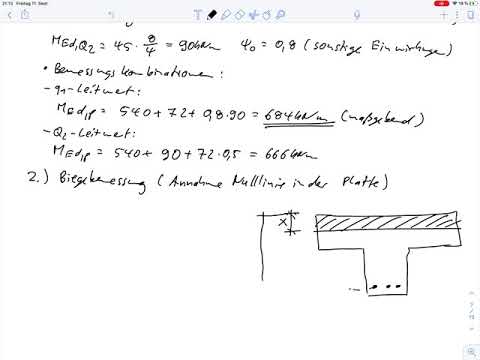 21:13 Freitag 11. Sept. 98 %
M Ed,Q2 = 45 · 8/4 = 90 kNm ψ0 = 0,8 (sonstige Einwirkungen)
• Bemessungskombinationen:
- q1-Leitwert:
M Ed,P = 540 + 72 + 0,8 · 90 = 684 kNm (maßgebend)
- Q2-Leitwert:
M Ed,P = 540 + 90 + 72 · 0,5 = 666 kNm
2.) Biegebemessung (Annahme Nulllinie in der Platte)
x